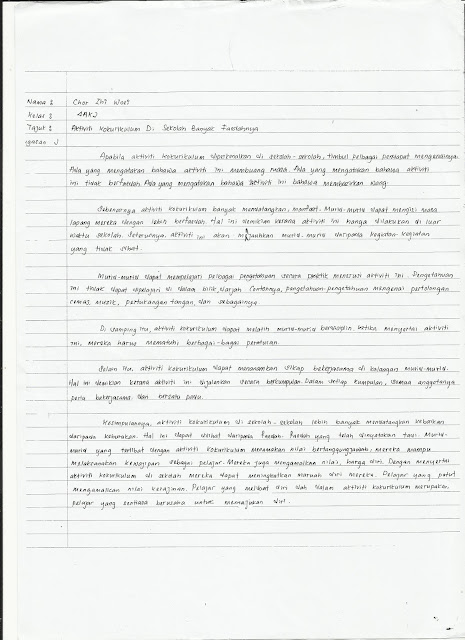 Nama : Char Zhi Woei
Kelas : 4AK2
Tajuk : Aktiviti Kokurikulum Di Sekolah Banyak Faedahnya
Apabila aktiviti kokurikulum diperkenalkan di sekolah-sekolah, timbul pelbagai pendapat mengenainya.
Ada yang mengatakan bahawa aktiviti ini membuang masa. Ada yang mengatakan bahawa aktiviti
ini tidak berfaedah. Ada yang mengatakan bahawa aktiviti ini bahawa membazirkan wang.
Sebenarnya aktiviti kokurikulum banyak mendatangkan manfaat. Murid-murid dapat mengisi masa
lapang mereka dengan lebih berfaedah. Hal ini demikian kerana aktiviti ini hanya dilakukan di luar
waktu sekolah. Seterusnya, aktiviti ini akan menjauhkan murid-murid daripada kegiatan-kegiatan
yang tidak sihat.
Murid-murid dapat mempelajari pelbagai pengetahuan secara praktik menerusi aktiviti ini. Pengetahuan
ini tidak dapat dipelajari di dalam bilik darjah. Contohnya, pengetahuan-pengetahuan mengenai pertolongan
cemas, muzik, pertukangan tangan, dan sebagainya.
Di samping itu, aktiviti kokurikulum dapat melatih murid-murid berdisiplin. Ketika menyertai aktiviti
ini, mereka harus mematuhi berbagai-bagai peraturan.
Selain itu, aktiviti kokurikulum dapat menanamkan sikap bekerjasama di kalangan murid-murid.
Hal ini demikian kerana aktiviti ini dijalankan secara berkumpulan. Dalam setiap kumpulan, semua anggotanya
perlu bekerjasama dan bersatu padu.
Kesimpulannya, aktiviti kokurikulum di sekolah-sekolah lebih banyak mendatangkan kebaikan
daripada keburukan. Hal ini dapat dilihat daripada faedah-faedah yang telah dinyatakan tadi. Murid-
murid yang terlibat dengan aktiviti kokurikulum menamakan nilai bertanggungjawab. Mereka mampu
melaksanakan kewajipan sebagai pelajar. Mereka juga mengamalkan nilai harga diri. Dengan menyertai
aktiviti kokurikulum di sekolah mereka dapat meningkatkan maruah diri mereka. Pelajar yang patut
mengamalkan nilai kerajinan. Pelajar yang melibat diri dalam aktiviti kokurikulum merupakan
pelajar yang sentiasa berusaha untuk memajukan diri.